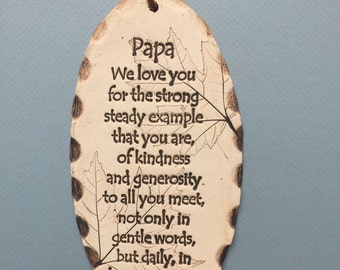 Papa
We love you
for the strong
steady example
that you are,
of kindness
and generosity
to all you meet,
not only in
gentle words,
but daily, in